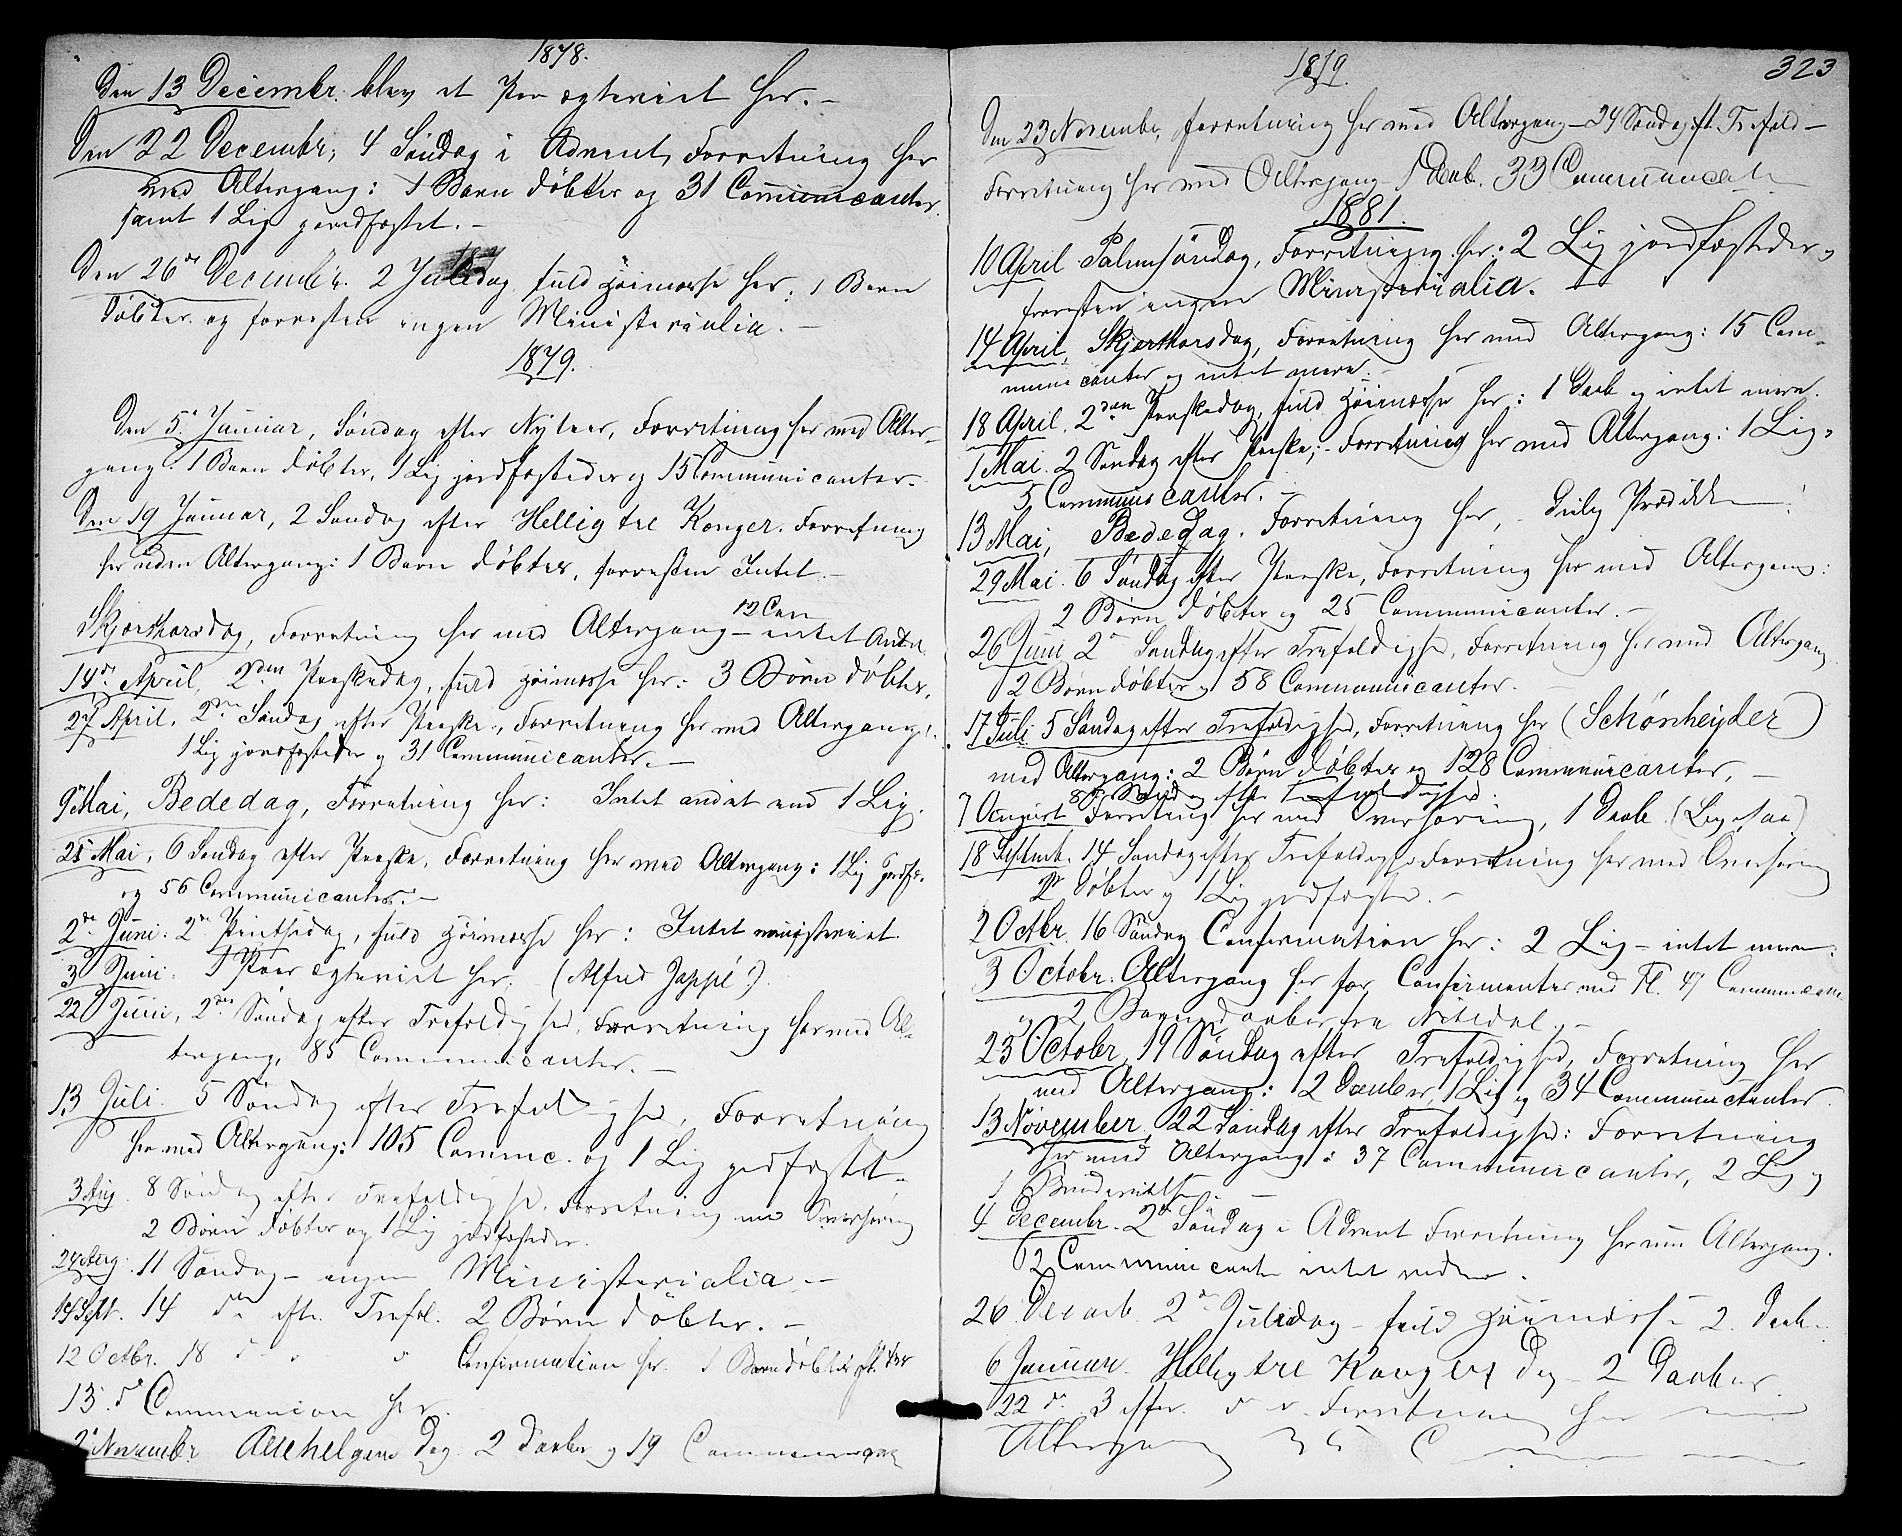 1878.
Den 13 Decembr. blev et Par ægteviet her. -
Den 22 Decembr, 4 Søndag i Advent, Forretning her
med Altergang: 1 Barn døbter og 31 Communicanter
samt 1 Lig jordfæstet. -
Den 26de Decembr. 2 Juledag fuld Høimesse her: 1 Barn
døbter og forresten ingen Ministerialia. -
1879.
Den 5. Januar, Søndag efter Nytaar, Forretning her med Alter-
gang: 1 Barn døbter, 1 Lig jordfæstedes og 15 Communicanter. -
Den 19 Januar, 2 Søndag efter Hellig tre Konger. Forretning
her uden Altergang: 1 Barn døbter, forresten Intet. -
Skjærthorsdag, Forretning her med Altergang - 12 Com intet Andet
14de April, 2den Paaskedag, fuld Høimesse her: 3 Børn døbter.
27 April. 2den Søndag efter Paaske, Forretning her med Altergang:
1 Lig jordfæstedes og 31 Communicanter. -
9 Mai, Bededag, Forretning her: Intet andet end 1 Lig.
25 Mai, 6 Søndag efter Paaske, Forretning her med Altergang: 1 Lig jordfæ.
og 56 Communicanter. -
2de Juni. 2den Pintsedag, fuld Høimesse her: Intet ministeriet.
3 Juni. 1 Par ægteviet her. (Alfred Jappé)
22 Juni, 2den Søndag efter Trefoldighed, Forretning her med Al-
tergang, 85 Communicanter. -
13 Juli. 5 Søndag efter Trefoldighed, Forretning
her med Altergang: 105 Commc. og 1 Lig jordfæstet. -
3 Aug. 8 Søndag efter Trefoldighed, Forretning med Overhøring
2 Børn døbter og 1 Lig jordfæstedes.
24 Aug. 11 Søndag - ingen Ministerialia. -
14 Sept. 14 do efter Trefol. 2 Børn døbter. -
12 Octbr. 18 Confirmation her. 1 Barn døbt
13. do Communion her.
2 Novembr Allehelgens Dag. 2 Daaber og 19
1879.
323
Den 23 Novembr, forretning her med Altergang - 24 Søndag eft. Trefold -
Forretning her med Altergang 1 Daab. 33 Communicanter
1881.
10 April Palmesøndag, Forretning her: 2 Lig jordfæstedes,
forresten ingen Ministerialia.
14 April, Skjærthorsdag, Forretning her med Altergang: 15 Com-
municanter og intet mere.
18 April. 2den Paaskedag, fuld Høimesse her: 1 Daab og intet mere.
1 Mai. 2 Søndag efter Paaske, - Forretning her med Altergang: 1 Lig,
5 Communicanter. -
13 Mai, Bededag. Forretning her, -
29 Mai. 6 Søndag efter Paaske, Forretning her med Altergang:
2 Børn døbter og 25 Communicanter. -
26 Juni 2 Søndag efter Trefoldighed, Forretning her med Altergang
2 Børn døbter og 58 Communicanter. -
17 Juli. 5 Søndag efter Trefoldighed, Forretning her (Schønheyder)
med Altergang: 2 Børn døbter og 128 Communicanter, -
8de Søndag efter Trefoldighed.
7 August Forretning her med Overhøring, 1 Daab.
18 Septemb. 14 Søndag efter Trefoldighed Forretning her med Overhøring
2 døbter og 1 Lig jordfæstet. -
2 Octbr. 16 Søndag Confirmation her: 2 Lig - intet mere.
3 Octobr. Altergang her for Confirmenter med Fl. 47 Communicant
og 2 Daaber fra Nitedal. -
23 Octobr 19 Søndag efter Trefoldighed, Forretning her
med Altergang: 2 Daaber, 1 Lig og 34 Communicanter.
13 November 22 Søndag efter Trefoldighed: Forretning
her med Altergang: 37 Communicanter, 2 Lig og
1 Brudevielse. -
4 Decembr. 2 Søndag i Advent Forretning her med Altergang.
12 Communicanter intet videre.
26 Decemb. 2 Juledag - fuld Høimesse 2 Daab.
6 Januar. Hellig tre Kongers Dag - 2 Daaber.
22 do. 3 efter Forretning her med
Altergang 35 C